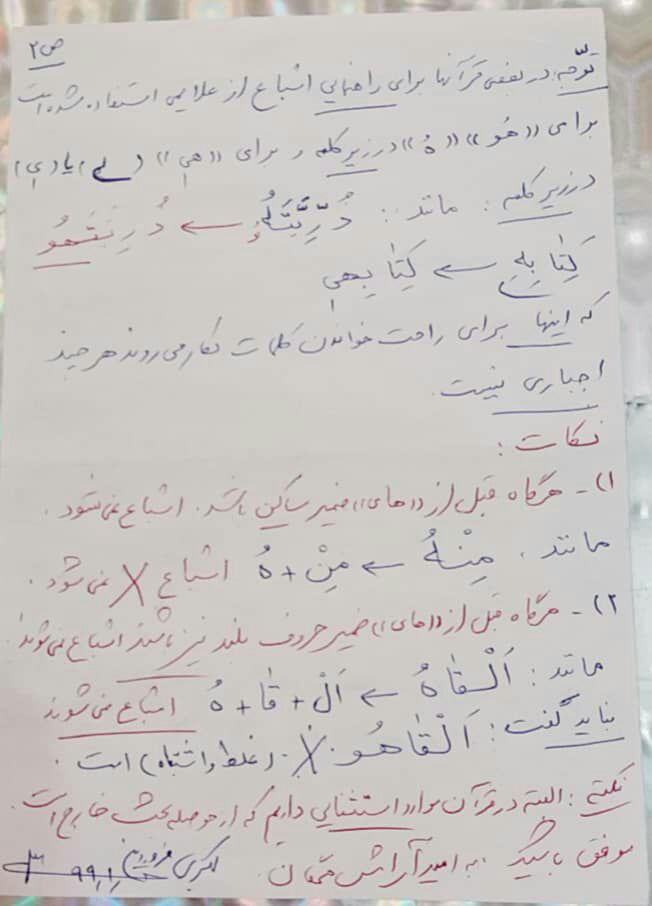 ص ۲
توجّه: در بعضی قرآنها برای راهنمایی اشباع از علایمی استفاده شده است
برای «هُو» «هُ» در زیر کلمه و برای «هی» (ے) یا (ی)
در زیر کلمه: مانند: ذُرِّیَّتَهُ ← ذُرِیَتَهُو
کِتابِهِ ← کِتابِهی
که اینها برای راحت خواندن کلمات بکار می روند هر چند
اجباری نیست.
نکات:
۱) - هرگاه قبل از «های» ضمیر ساکن باشد. اشباع نمی شود.
مانند: مِنْهُ ← مِنْ + هُ اشباع X نمی شود.
۲) - هرگاه قبل از «های» ضمیر حروف بلند نیز باشد اشباع نمی شوند.
مانند: اَلْقاهُ ← اَلْ + قا + هُ اشباع نمی شوند
نباید گفت: اَلْقاهُو X. (غلط و اشتباه) است.
نکته: البته در قرآن موارد استثنایی داریم که از حوصله بحث خارج است.
موفق باشید. به امید آرامش همگان. اکبری فروردین ۹۹